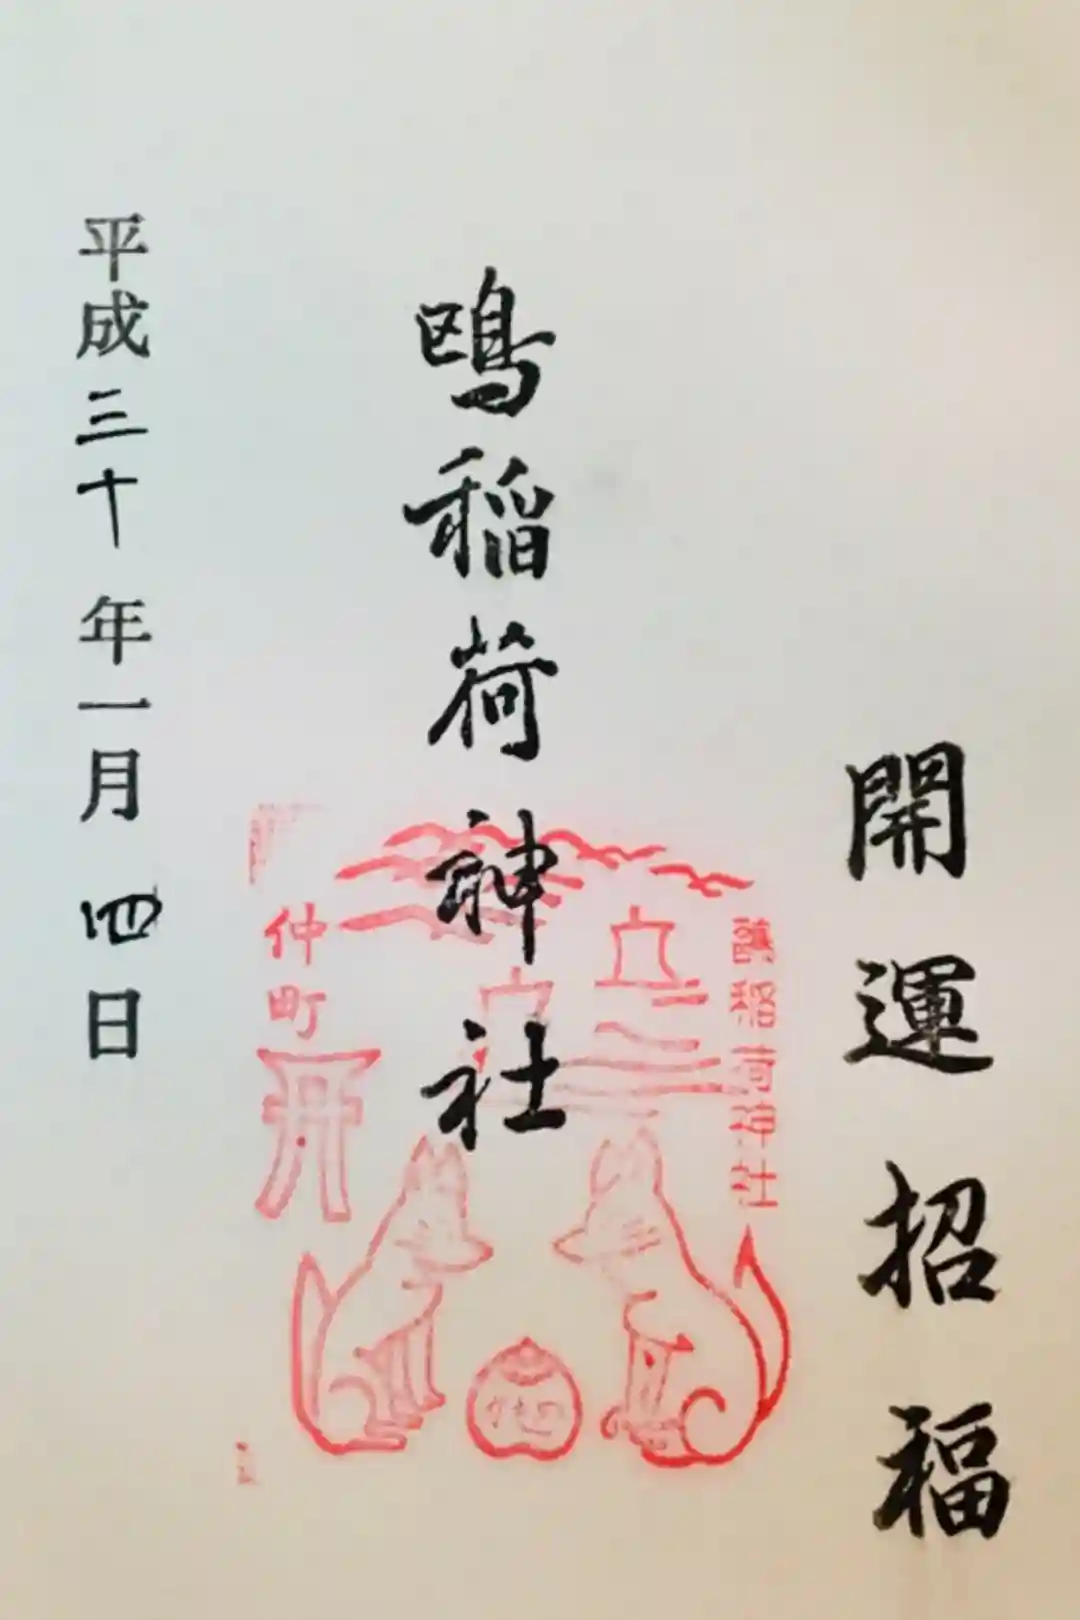 開運招福
鴎稲荷神社
平成三十年一月四日
稲荷神社
仲町
かもめ